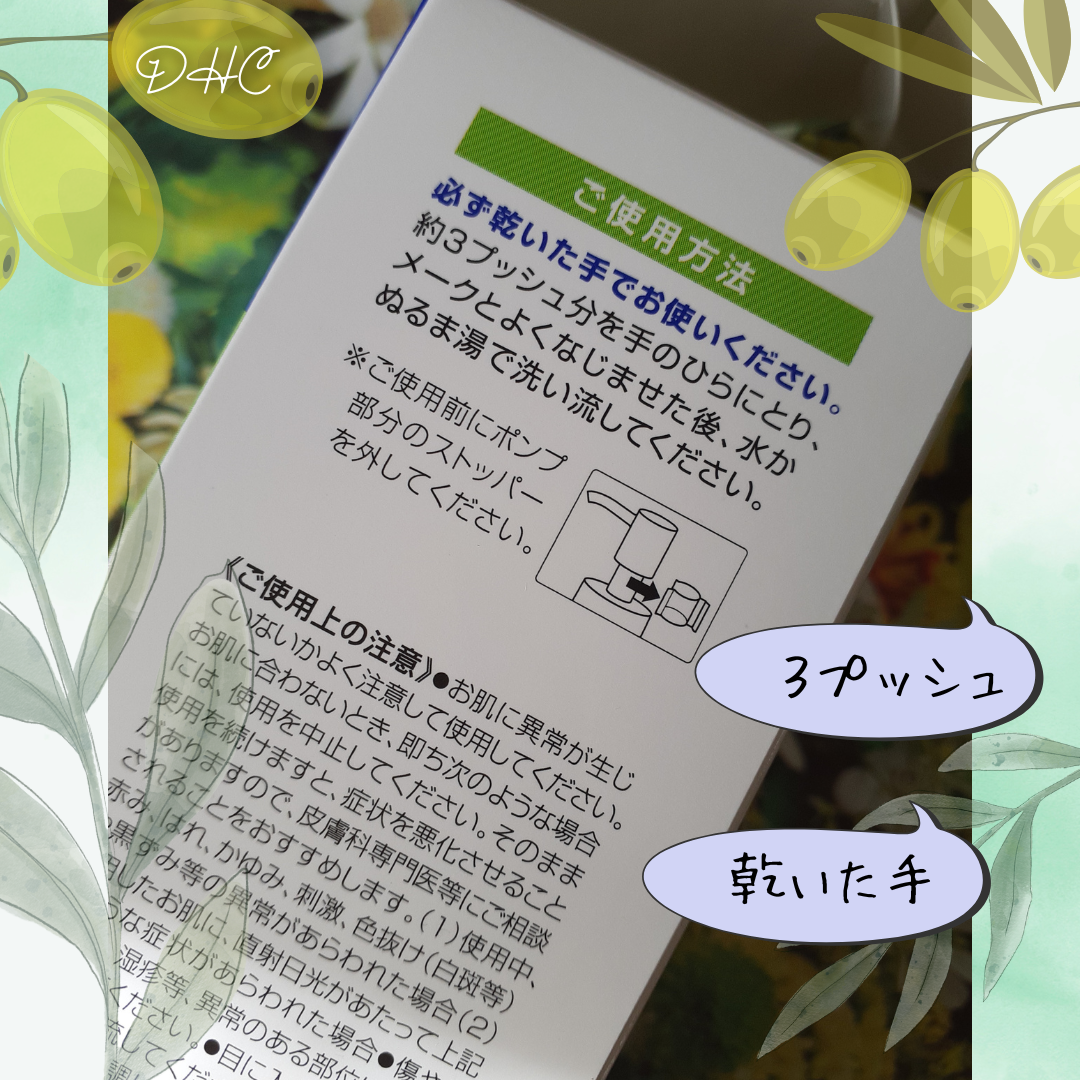 DHC
ご使用方法
必ず乾いた手でお使いください。
約3プッシュ分を手のひらにとり、
メークとよくなじませた後、水か
ぬるま湯で洗い流してください。
※ご使用前にポンプ
部分のストッパー
を外してください。
《ご使用上の注意》●お肌に異常が生じ
ていないかよく注意して使用してください。
お肌に合わないとき、即ち次のような場合
には、使用を中止してください。そのまま
使用を続けますと、症状を悪化させること
がありますので、皮膚科専門医等にご相談
されることをおすすめします。(1)使用中、
赤み、はれ、かゆみ、刺激、色抜け(白斑等)
黒ずみ等の異常があらわれた場合(2)
したお肌に、直射日光があたって上記
な症状があらわれた場合●傷や
湿疹等、異常のある部位
ください。●目に入
3プッシュ
乾いた手